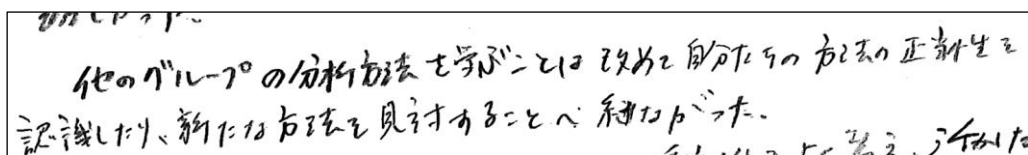 他のグループの分析方法を学ぶことは改めて自分たちの方法の正当性を
認識したり、新たな方法を見討することへ繋ながった。